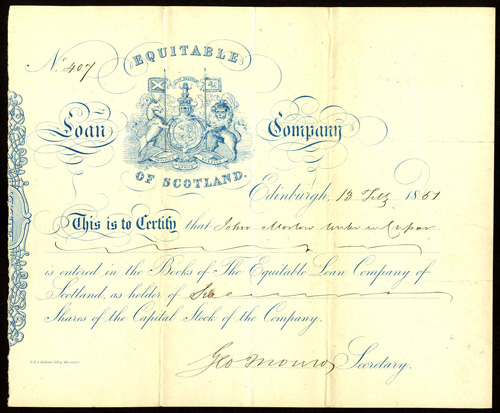 No. 407
EQUITABLE
Loan Company
OF SCOTLAND.
Edinburgh, 13 Feby 1851
This is to Certify that John
is entered in the Books of The Equitable Loan Company of
Scotland, as holder of
Shares of the Capital Stock of the Company.
Geo Monro Secretary.